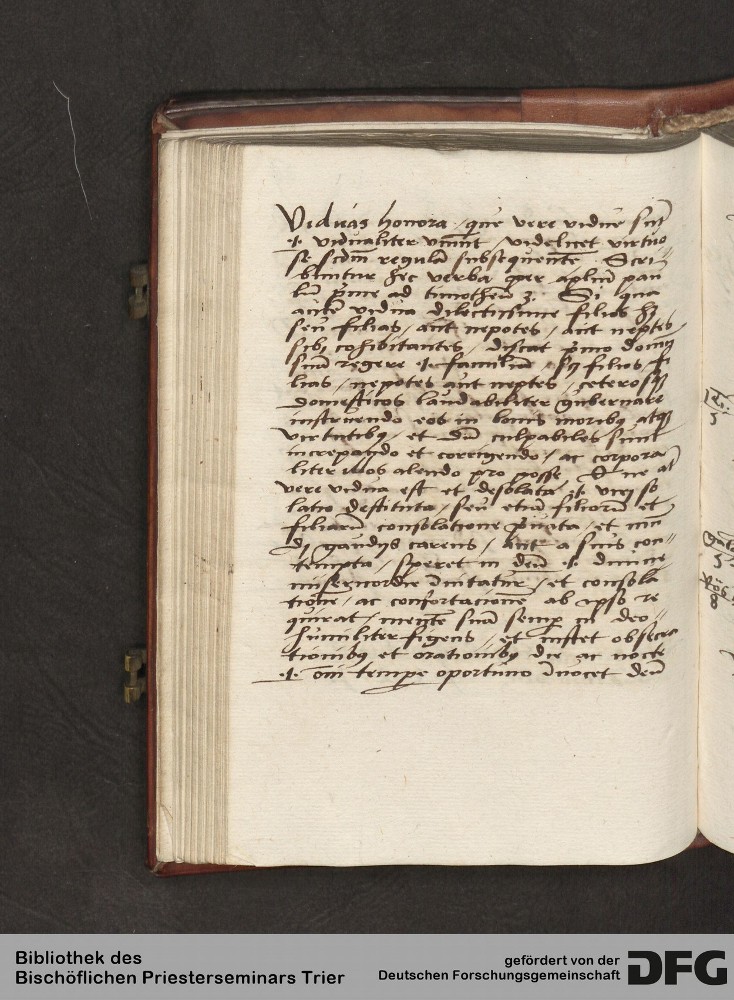 Viduas honora / que vere vidue sūt
.i. vidualiter viuūt / videlicet virtuo
se scdm̄ regulā subsequentē. Scri-
buntur hec verba per aplm̄ pau
lū prime ad timotheū 3. Si qua
autē vidua dilectissime filios hȝ
seu filias / aut nepotes / aut neptes
sibi cohibitantes / discat pͥmo domū
suā regere .i. familiā / sȝ filios / fi
lias / nepotes aut neptes / ceterosqȝ
domesticos laudabiliter gubernare
instruendo eos in bonis moribȝ atqȝ
virtutibȝ / et dū culpabiles sunt
increpando et corrigendo / ac corpora
liter illos alendo pro posse. Que at̄
vere vidua est et desolata .i. viri so
latio destituta / seu etiā filiorū et
filiarū consolatione pͥuata / et mū
di gaudijs carens / aut a suis con-
tempta / speret in deū .i. diuine
misericordie īnitatur / et consola
tionē / ac confortacionē ab ipso re
quirat / mentē suā semp̄ in deo
humiliter figens / et instet obsecra
tionibȝ et orationibȝ die ac nocte
.i. om̄i tempe oportuno īuocet deū
Bibliothek des
Bischöflichen Priesterseminars Trier
gefördert von der
Deutschen Forschungsgemeinschaft
DFG